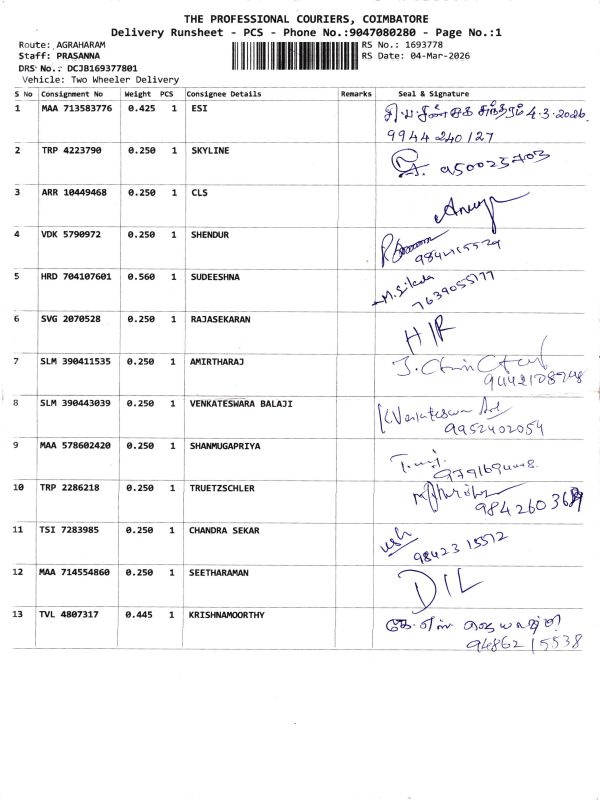 THE PROFESSIONAL COURIERS, COIMBATORE
Delivery Runsheet - PCS - Phone No.:9047080280 - Page No.:1
Route: AGRAHARAM RS No.: 1693778
Staff: PRASANNA RS Date: 04-Mar-2026
DRS No.: DCJB169377801
Vehicle: Two Wheeler Delivery
S No Consignment No Weight PCS Consignee Details Remarks Seal & Signature
1 MAA 713583776 0.425 1 ESI 4.3.2026
9944240127
2 TRP 4223790 0.250 1 SKYLINE
3 ARR 10449468 0.250 1 CLS
4 VDK 5790972 0.250 1 SHENDUR
5 HRD 704107601 0.560 1 SUDEESHNA
7639055177
6 SVG 2070528 0.250 1 RAJASEKARAN HIR
7 SLM 390411535 0.250 1 AMIRTHARAJ
8 SLM 390443039 0.250 1 VENKATESWARA BALAJI
9952402054
9 MAA 578602420 0.250 1 SHANMUGAPRIYA
10 TRP 2286218 0.250 1 TRUETZSCHLER
11 TSI 7283985 0.250 1 CHANDRA SEKAR
9842315512
12 MAA 714554860 0.250 1 SEETHARAMAN DIL
13 TVL 4807317 0.445 1 KRISHNAMOORTHY
9486215538